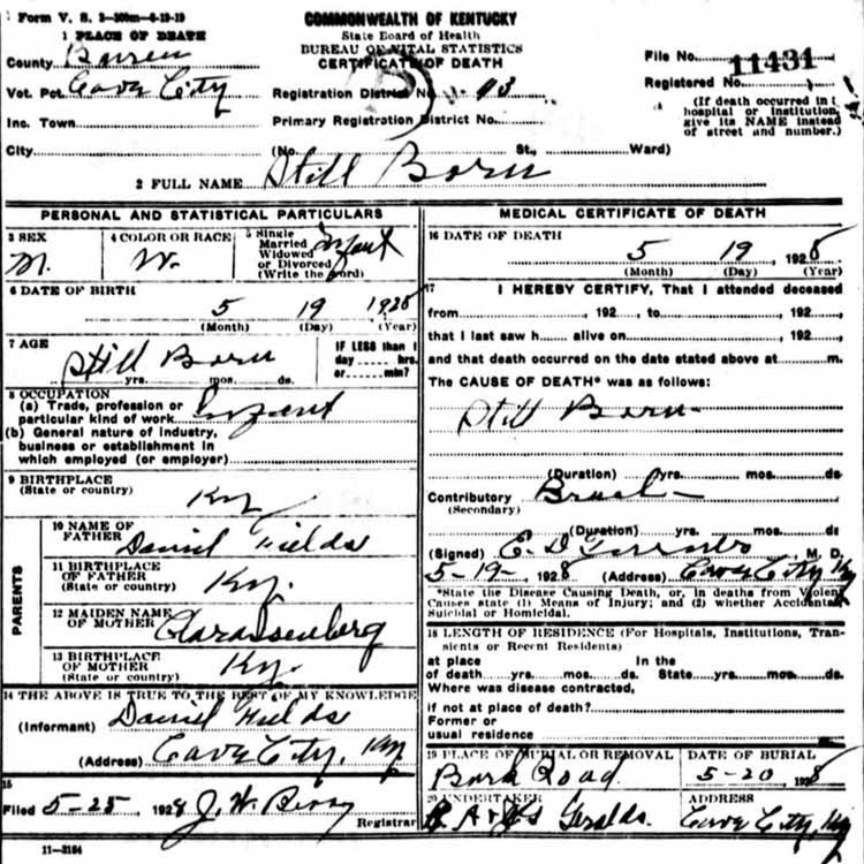 Form V. S. 1-300m-6-19-19
COMMONWEALTH OF KENTUCKY
State Board of Health
BUREAU OF VITAL STATISTICS
CERTIFICATE OF DEATH
1 PLACE OF DEATH
County Barren
Vot. Pct. Cave City
Inc. Town
City
Registration District No. 43
Primary Registration District No.
(No. St., Ward)
File No. 11431
Registered No.
(If death occurred in
hospital or institution,
give its NAME instead
of street and number.)
2 FULL NAME Still Born
PERSONAL AND STATISTICAL PARTICULARS
3 SEX
M.
4 COLOR OR RACE
W.
5 Single
Married
Widowed
or Divorced
(Write the word)
Infant
6 DATE OF BIRTH
5 19 1928
(Month) (Day) (Year)
7 AGE
Still Born
yrs. mos. ds.
IF LESS than 1
day hrs.
or min?
8 OCCUPATION
(a) Trade, profession or
particular kind of work Infant
(b) General nature of industry,
business or establishment in
which employed (or employer)
9 BIRTHPLACE
(State or country)
Ky
PARENTS
10 NAME OF
FATHER
Daniel Fields
11 BIRTHPLACE
OF FATHER
(State or country)
Ky.
12 MAIDEN NAME
OF MOTHER
Clara Isenberg
13 BIRTHPLACE
OF MOTHER
(State or country)
Ky.
14 THE ABOVE IS TRUE TO THE BEST OF MY KNOWLEDGE
(Informant) Daniel Fields
(Address) Cave City, Ky
15
Filed 5-25 1928 J. W. Berry
Registrar
11-3184
MEDICAL CERTIFICATE OF DEATH
16 DATE OF DEATH
5 19 1928
(Month) (Day) (Year)
17 I HEREBY CERTIFY, That I attended deceased
from , 192 , to , 192 ,
that I last saw h alive on , 192 ,
and that death occurred on the date stated above at m.
The CAUSE OF DEATH* was as follows:
Still Born
(Duration) yrs. mos. ds
Contributory
(Secondary)
(Duration) yrs. mos. ds
(Signed) E. D. M. D.
5-19-, 1928 (Address) Cave City Ky
*State the Disease Causing Death, or, in deaths from Violent
Causes state (1) Means of Injury; and (2) whether Accidental,
Suicidal or Homicidal.
18 LENGTH OF RESIDENCE (For Hospitals, Institutions, Tran-
sients or Recent Residents)
at place In the
of death yrs. mos. ds. State yrs. mos. ds.
Where was disease contracted,
if not at place of death?
Former or
usual residence
19 PLACE OF BURIAL OR REMOVAL
Road
DATE OF BURIAL
5-20 1928
20 UNDERTAKER
Geralds.
ADDRESS
Cave City, Ky